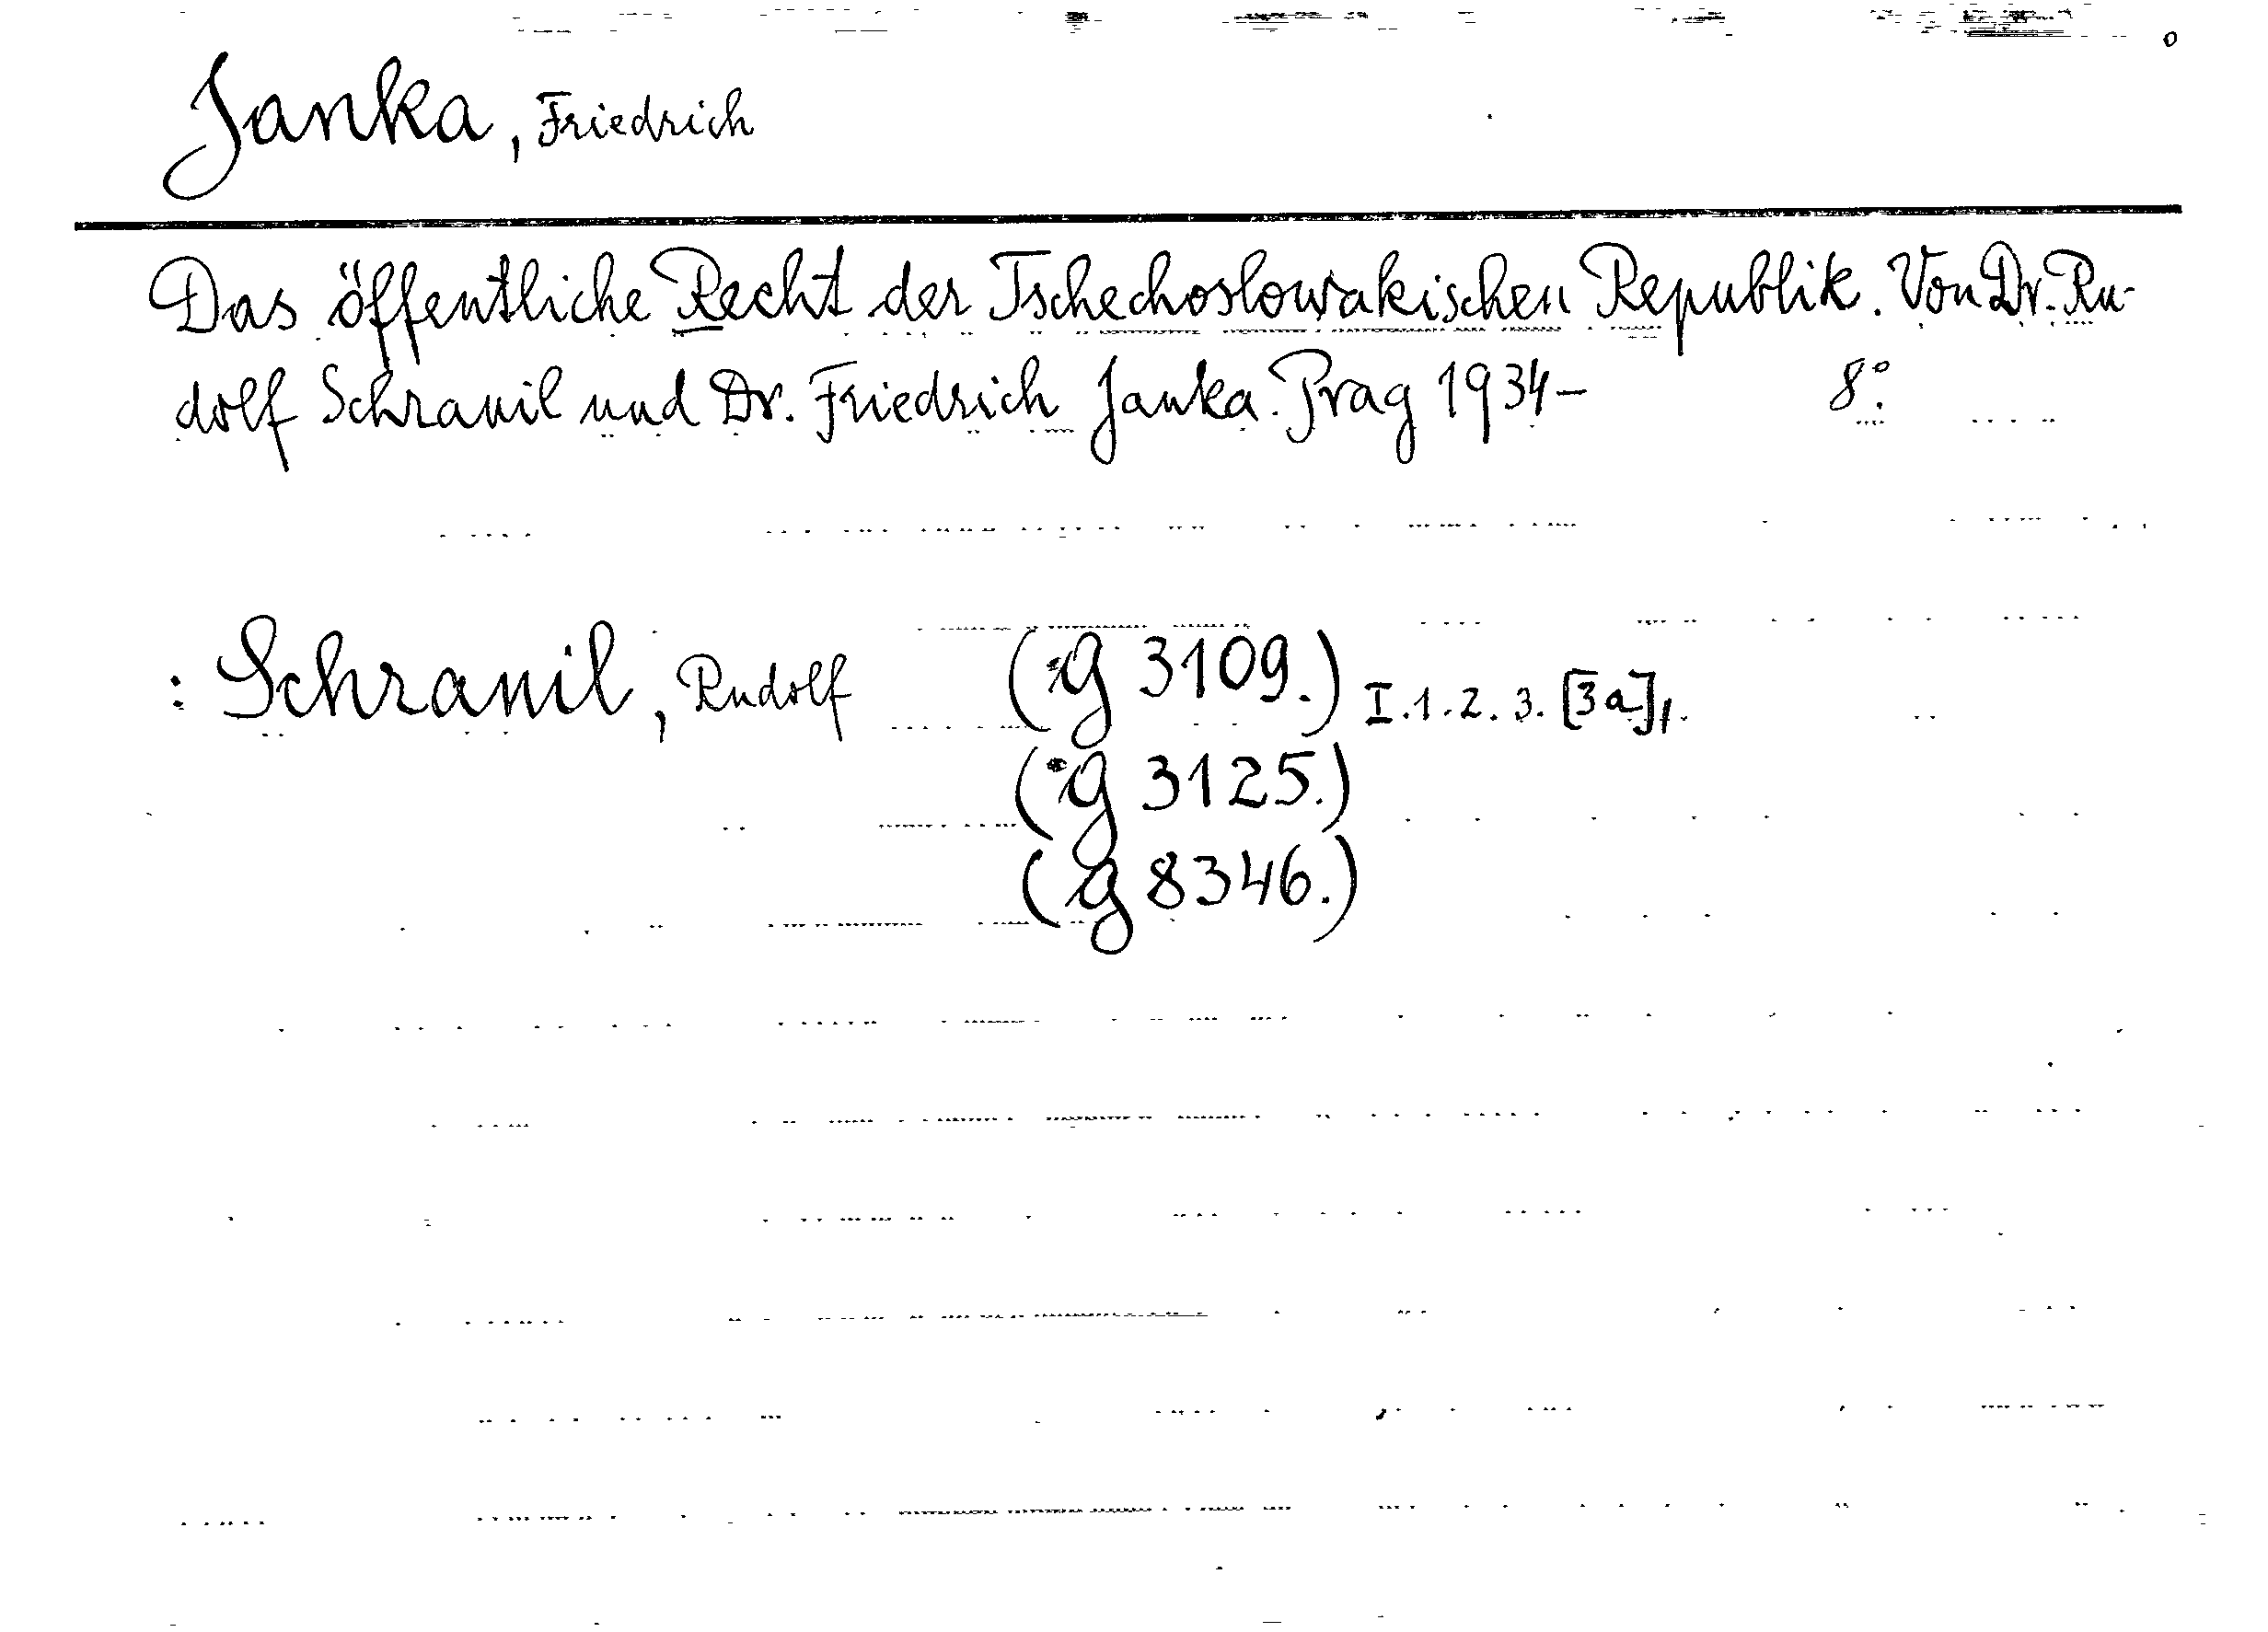 Janka, Friedrich
Das öffentliche Recht der Tschechoslowakischen Republik. Von Dr. Ru-
dolf Schranil und Dr. Friedrich Janka. Prag 1934- 8°.
: Schranil, Rudolf (*g 3109.) I.1.2.3.[3a],.
(*g 3125.)
(g 8346.)